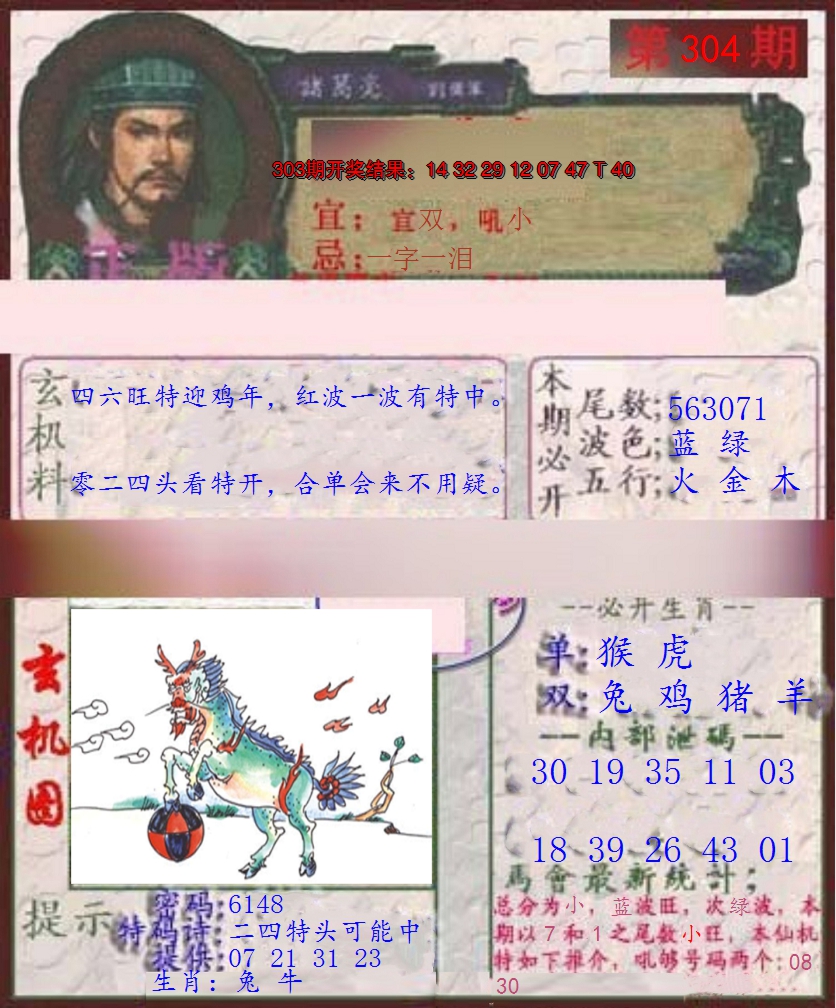 第 304 期
諸葛亮 劉備軍
303期开奖结果：14 32 29 12 07 47 T 40
宜：宜双，吼小
忌：一字一泪
正版
玄机料
四六旺特迎鸡年，红波一波有特中。
零二四头看特开，合单会来不用疑。
本期必开
尾数;563071
波色;蓝 绿
五行;火 金 木
--必开生肖--
单:猴 虎
双:兔 鸡 猪 羊
—内部泄碼—
30 19 35 11 03
18 39 26 43 01
馬會最新統計；
总分为小，蓝波旺，次绿波，本
期以７和１之尾数小旺，本仙机
特如下推介，吼够号码两个:08
30
玄机图
提示
密码:6148
特码诗:二四特头可能中
提供:07 21 31 23
生肖：兔 牛